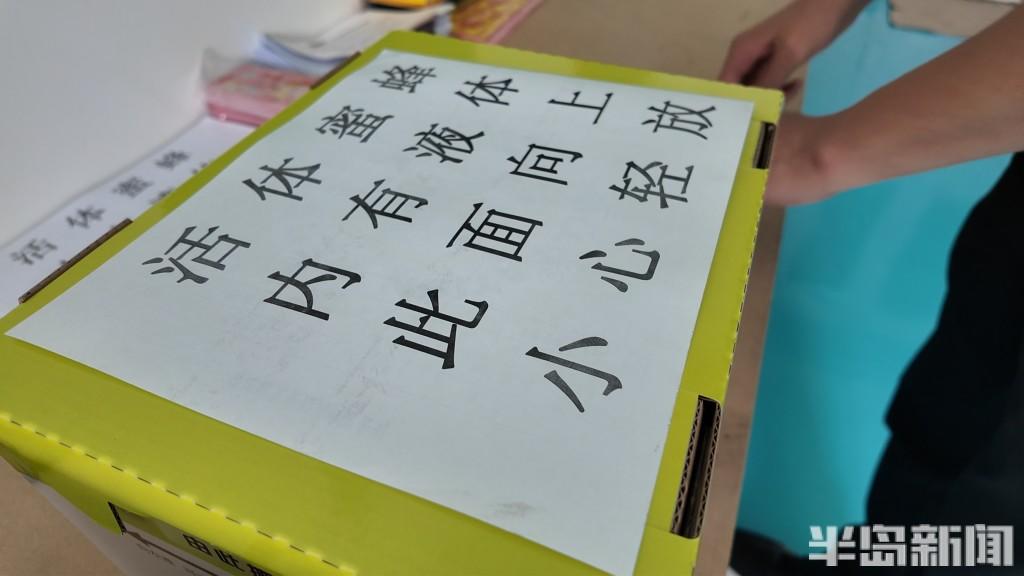 活体蜜蜂
内有液体
此面向上
小心轻放
活体蜜蜂
半岛新闻